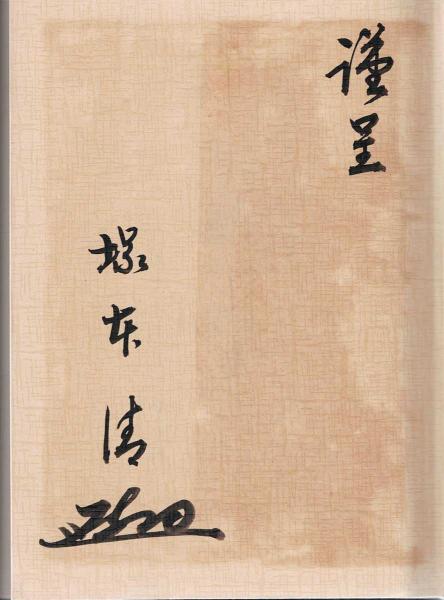 謹呈
塚本清